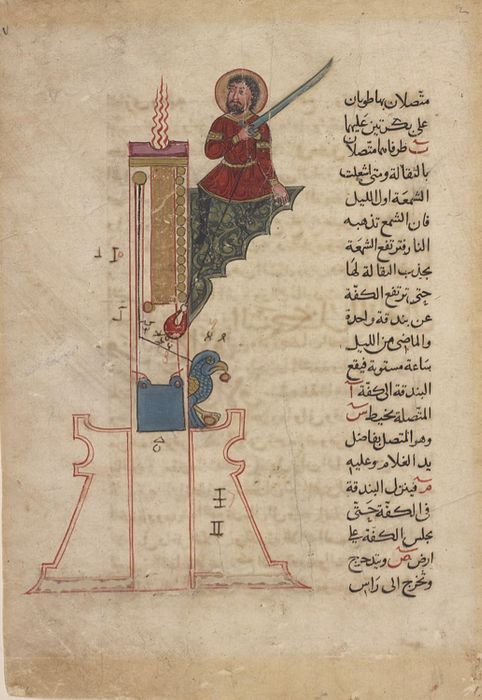 متصلان بها
على بكرتين عليهما
طرفاهما متصلان
بالثقالة ومتى اشعلت
الشمعة اول الليل
فان الشمع تذهبه
النار فترتفع الشمعة
بجذب الثقالة لها
حتى ترتفع الكفة
عن بندقة واحدة
والماضى من الليل
ساعة مستوية فيقع
البندقة الى كفة آ
المتصلة بخيط س
وهو المتصل بفاضل
يد الغلام وعليه
م فينزل البندقة
فى الكفة حتى
يجلس الكفة على
ارض ص
وتخرج الى راس